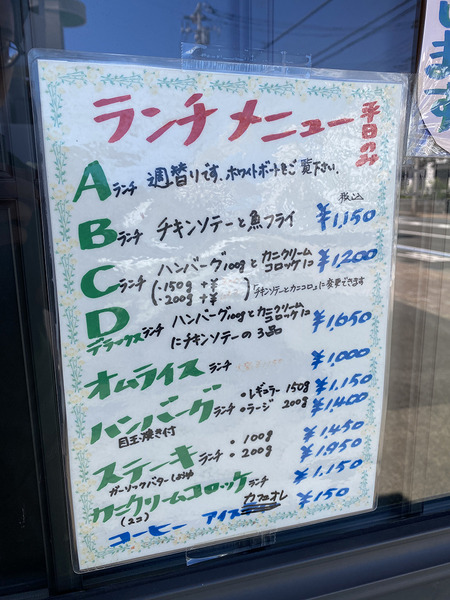 ランチメニュー 平日のみ
Aランチ 週替りです。ホワイトボードをご覧下さい。
税込
Bランチ チキンソテーと魚フライ ¥1,150
Cランチ ハンバーグ100gとカニクリームコロッケ1コ ¥1,200
(・150g +¥
・200g +¥ )「チキンソテーとカニコロ」に変更できます
Dデラックスランチ ハンバーグ100gとカニクリームコロッケ1コ ¥1,650
にチキンソテーの3品
オムライスランチ ¥1,000
ハンバーグランチ ・レギュラー 150g ¥1,150
目玉焼き付 ・ラージ 200g ¥1,400
ステーキランチ ・100g ¥1,450
ガーリックバターしょうゆ ・200g ¥1,950
カニクリームコロッケランチ ¥1,150
(2コ)
コーヒー アイス カフェオレ ¥150